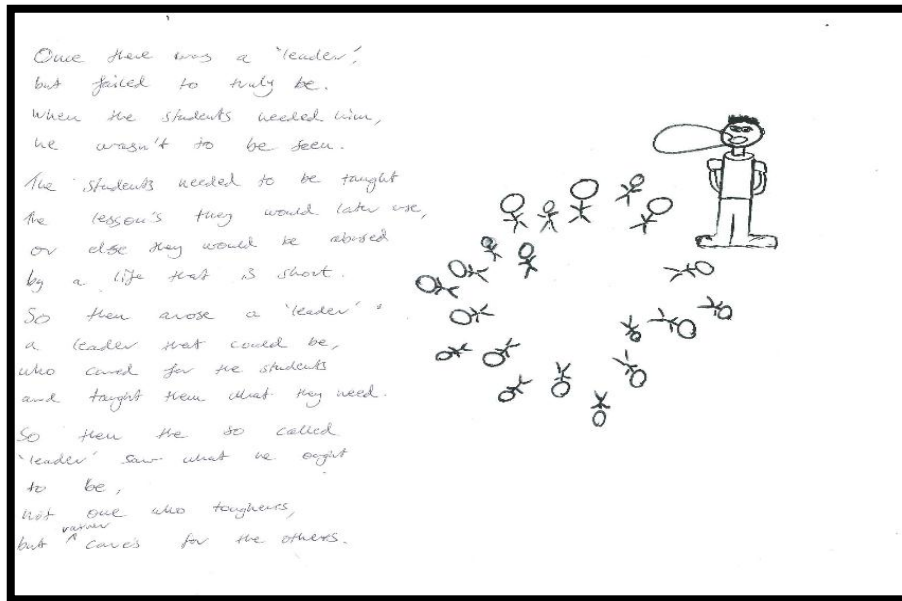 Once there was a 'leader',
but failed to truly be.
When the students needed him,
he wasn't to be seen.
The students needed to be taught
the lesson's they would later use,
or else they would be abused
by a life that is short.
So then arose a 'leader'
a leader that could be,
who cared for the students
and taught them what they need.
So then the so called
'leader' saw what he ought
to be,
not one who toughens,
but rather cares for the others.